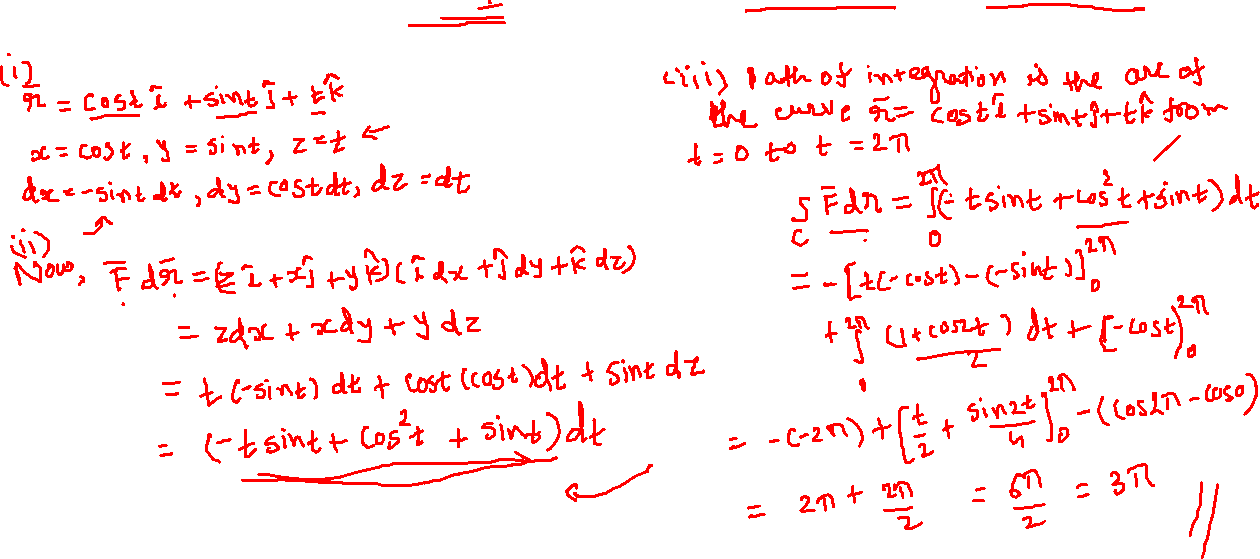 (i) r̄ = cost î + sint ĵ + t k̂
x = cost, y = sint, z = t ←
dx = -sint dt, dy = cost dt, dz = dt
(ii)
Now, F̄ dr̄ = (z î + x ĵ + y k̂) (î dx + ĵ dy + k̂ dz)
= zdx + xdy + y dz
= t (-sint) dt + cost (cost) dt + sint dz
= (-t sint + cos²t + sint) dt
(iii) Path of integration is the arc of
the curve r̄ = cost î + sint ĵ + t k̂ from
t = 0 to t = 2π
∫_C F̄ dr = ∫_0^{2π} (- t sint + cos²t + sint) dt
= - [t(-cost) - (-sint)]_0^{2π}
+ ∫^{2π} (1 + cos2t)/2 dt + [-cost]_0^{2π}
= -(-2π) + [t/2 + sin2t/4]_0^{2π} - (cos2π - cos0)
= 2π + 2π/2 = 6π/2 = 3π //